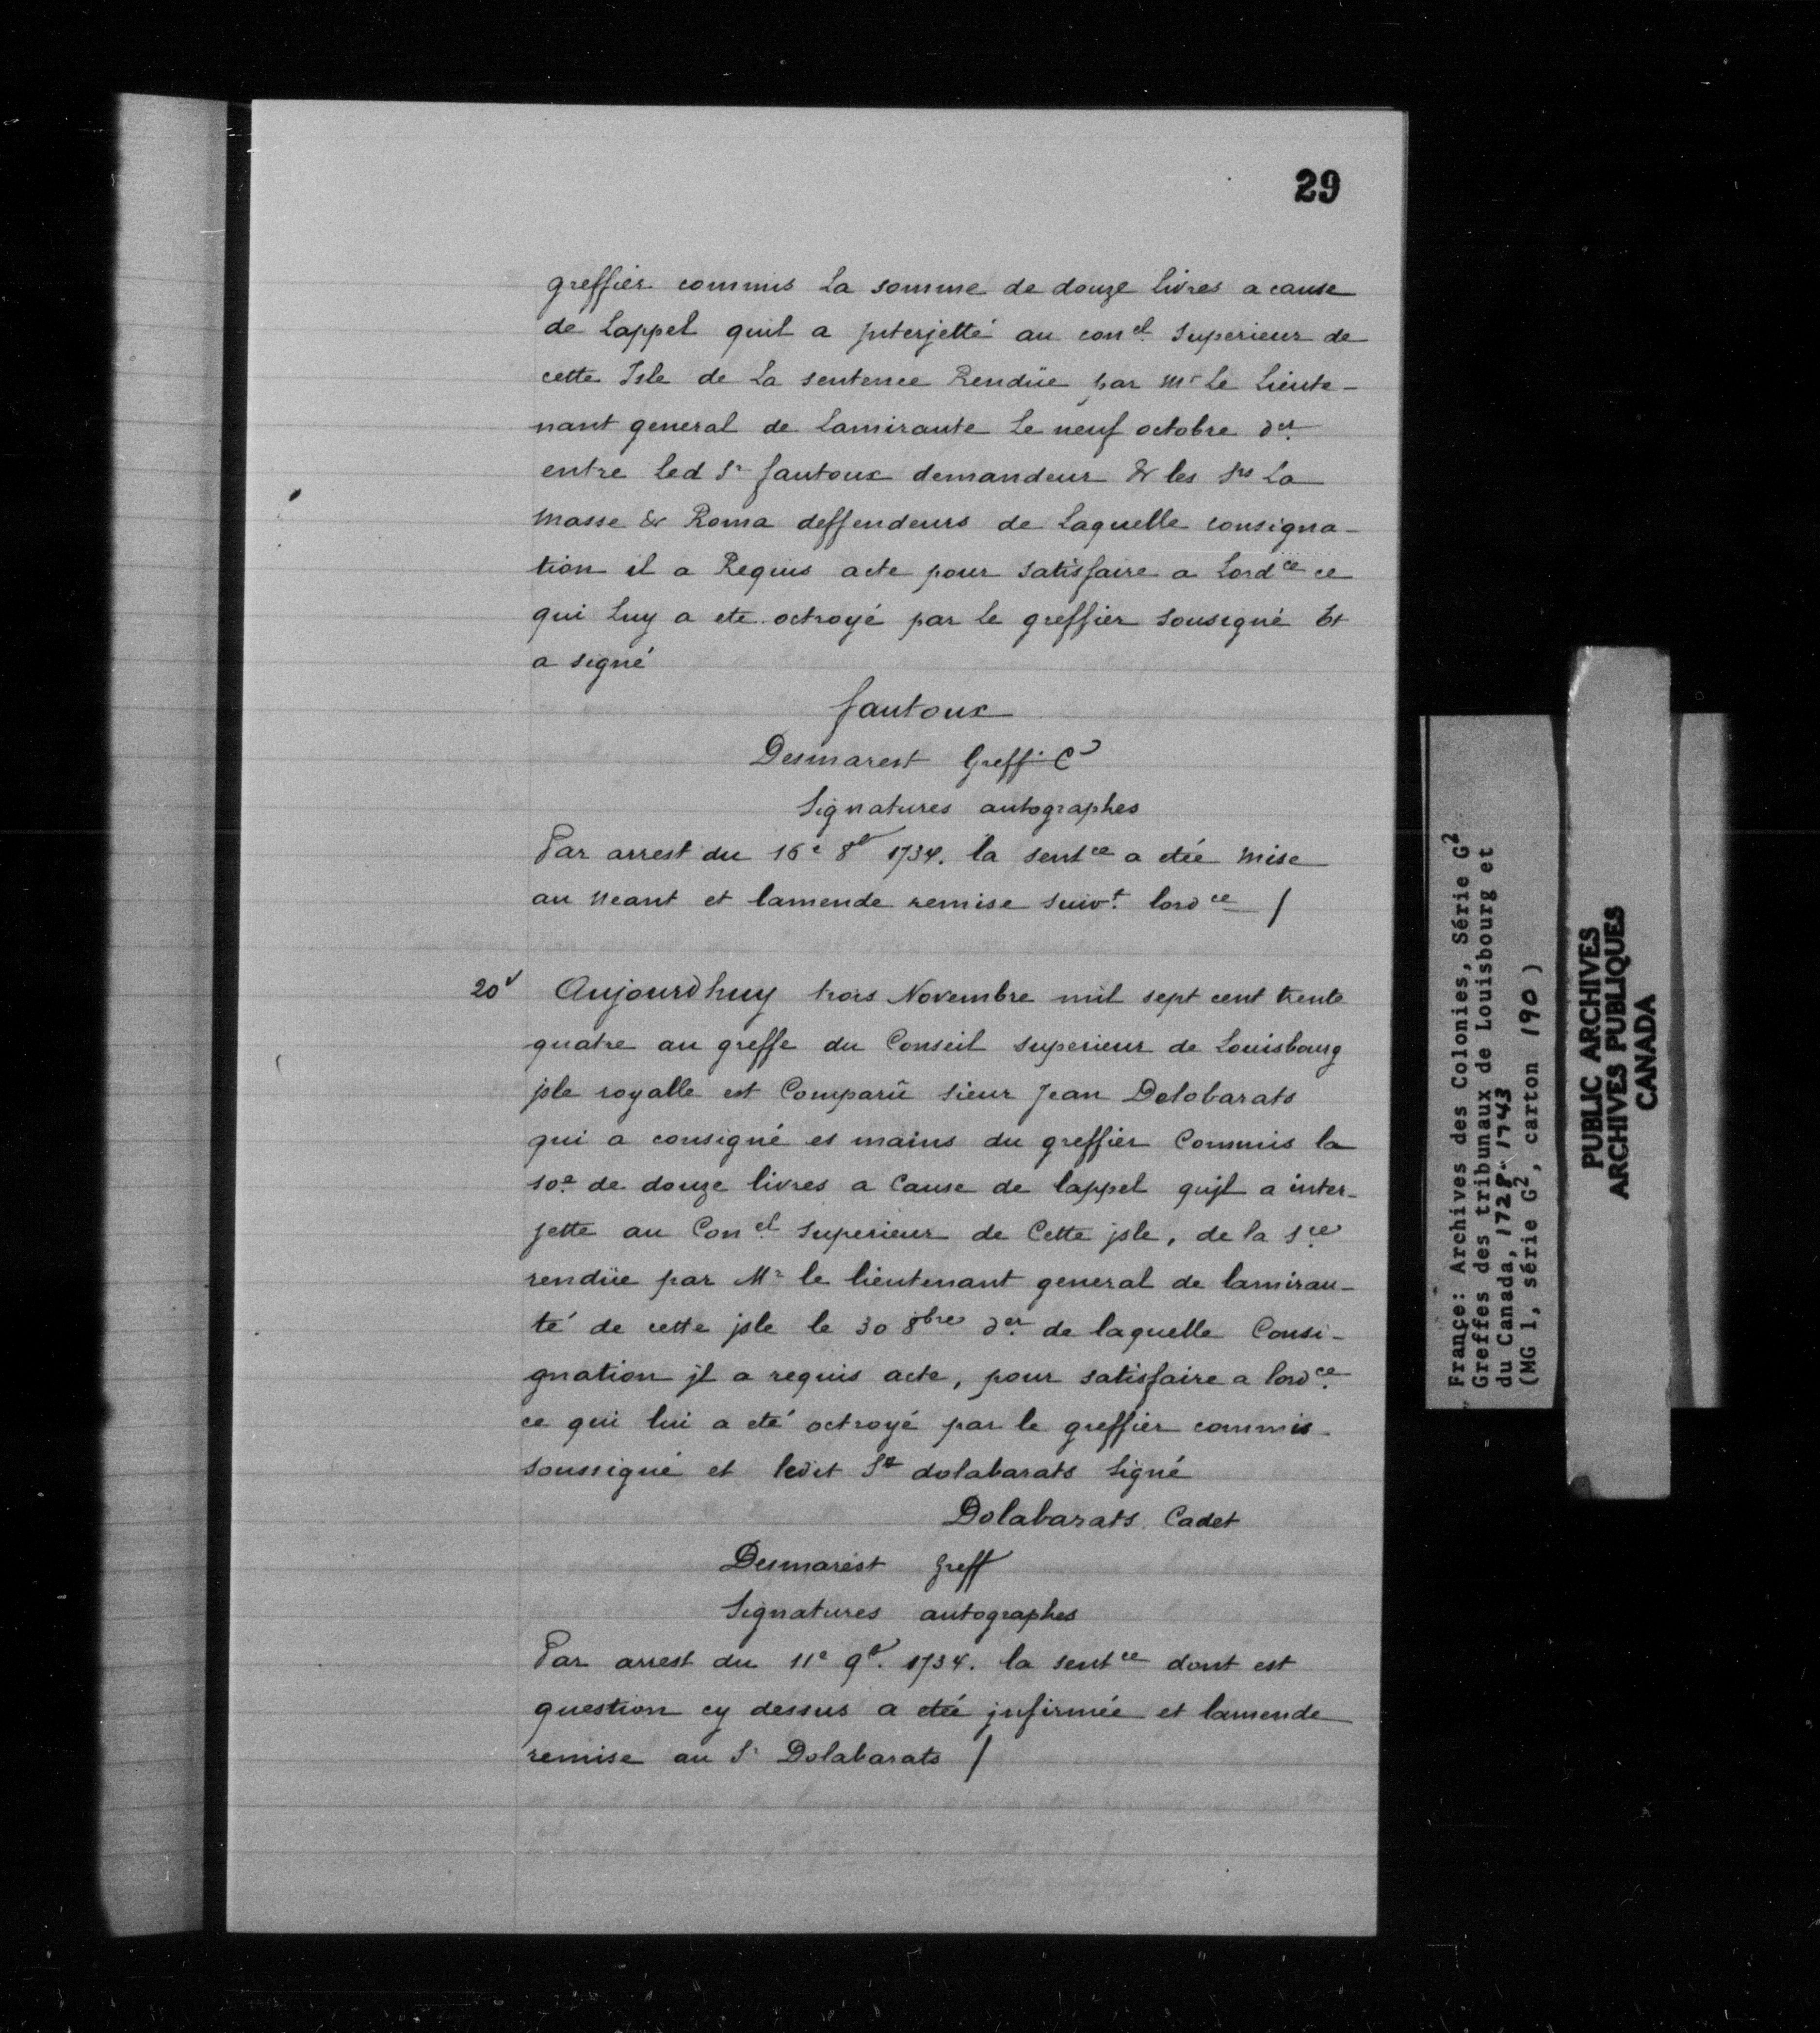 29
greffier commis La somme de douze livres a cause
de Lappel quil a jnterjetté au con.el Superieur de
cette Isle de La sentence Rendüe par Mr Le Lieute-
nant general de Lamiraute Le neuf octobre der
entre led Sr fautoux demandeur & les Srs La
Masse & Roma deffendeurs de Laquelle consigna-
tion il a Requis acte pour Satisfaire a Lordce ce
qui Luy a ete octroyé par Le greffier Sousigné Et
a signé
fautoux
Desmarest Greff. C
Signatures autographes
Par arrest du 16e 8e 1734. la sentce a etée mise
au neant et lamende remise suivt. lordce /
20v Aujourdhuy trois Novembre mil sept cent trente
quatre au greffe du Conseil superieur de Louisbourg
jsle royalle est Comparû sieur Jean Dolobarats
qui a consigné es mains du greffier Commis la
so.e de douze livres a Cause de lappel qujl a inter-
jette au Con.el Superieur de Cette jsle, de la sce
rendüe par Mr le lieutenant general de lamirau-
té de cette jsle le 30 8bre der de laquelle Consi-
gnation jl a requis acte, pour satisfaire a lordce.
ce qui lui a eté octroyé par le greffier commis
soussigné et ledit Sr dolabarats Signé
Dolabarats Cadet
Desmarest Greff
Signatures autographes
Par arrest du 11e 9e. 1734. la sentce dont est
question cy dessus a etée jnfirmée et lamende
remise au Sr Dolabarats /
France: Archives des Colonies, Série G2
Greffes des tribunaux de Louisbourg et
du Canada, 1728-1743
(MG 1, série G2, carton 190)
PUBLIC ARCHIVES
ARCHIVES PUBLIQUES
CANADA